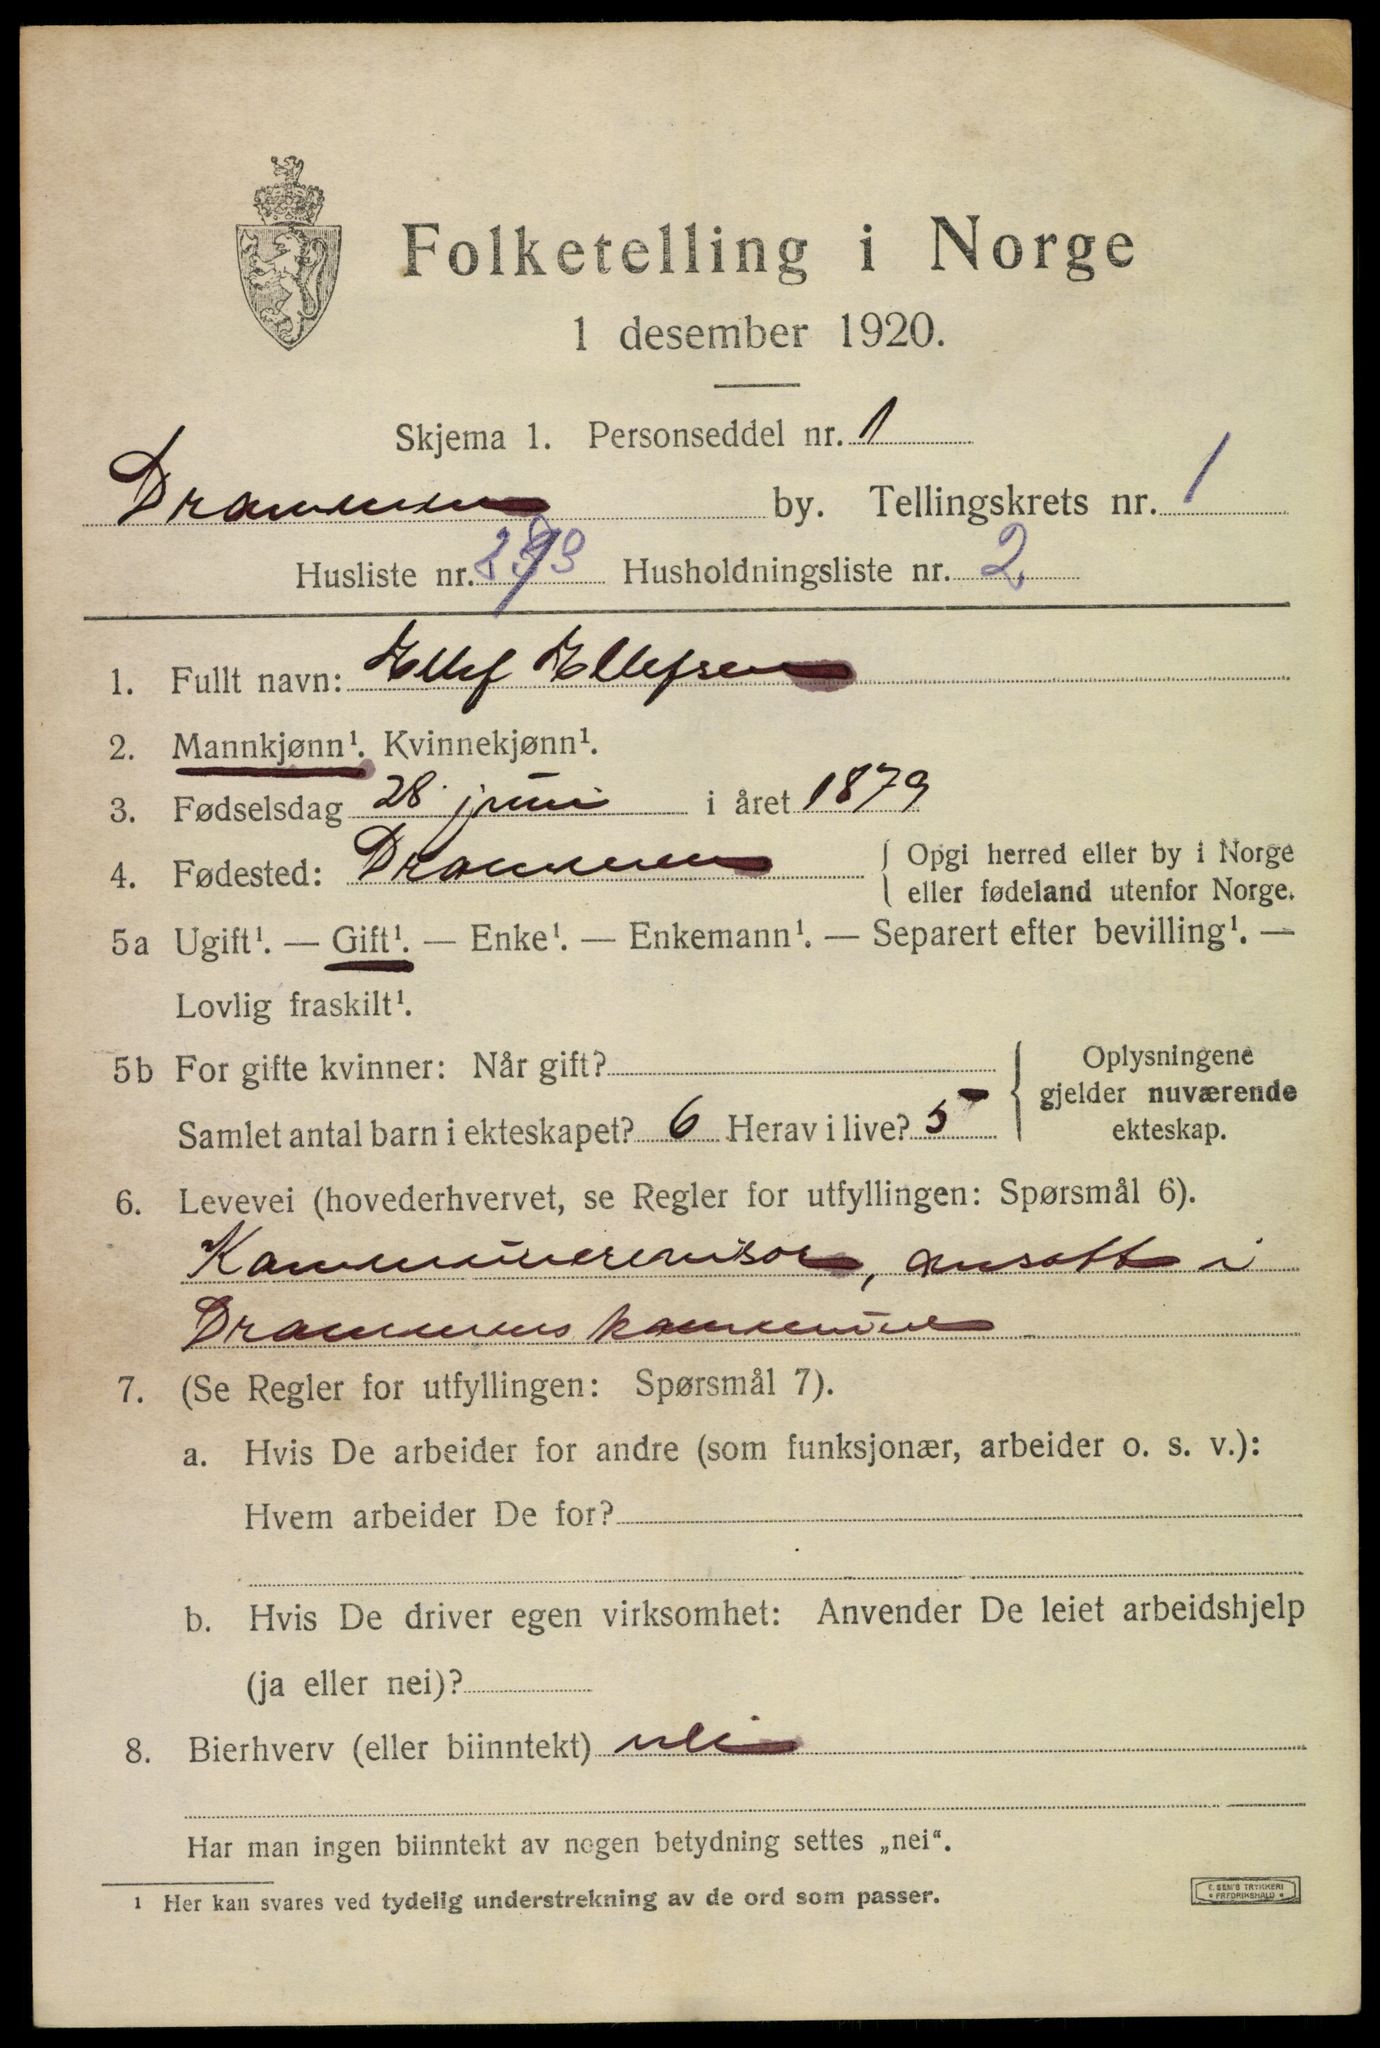 Folketelling i Norge
1 desember 1920.
Skjema 1. Personseddel nr. 1
Drammen by. Tellingskrets nr. 1
Husliste nr. Husholdningsliste nr. 2
1. Fullt navn: Ellef Ellefsen
2. Mannkjønn¹. Kvinnekjønn¹.
3. Fødselsdag 28. juni i året 1879
4. Fødested: Drammen { Opgi herred eller by i Norge
eller fødeland utenfor Norge.
5a Ugift¹. — Gift¹. — Enke¹. — Enkemann¹. — Separert efter bevilling¹. —
Lovlig fraskilt¹.
5b For gifte kvinner: Når gift?
Samlet antal barn i ekteskapet? 6 Herav i live? 5
Oplysningene
gjelder nuværende
ekteskap.
6. Levevei (hovederhvervet, se Regler for utfyllingen: Spørsmål 6).
Kommunerevisor, ansatt i
Drammens kommune
7. (Se Regler for utfyllingen: Spørsmål 7).
a. Hvis De arbeider for andre (som funksjonær, arbeider o. s. v.):
Hvem arbeider De for?
b. Hvis De driver egen virksomhet: Anvender De leiet arbeidshjelp
(ja eller nei)?
8. Bierhverv (eller biinntekt) nei
Har man ingen biinntekt av nogen betydning settes „nei".
1 Her kan svares ved tydelig understrekning av de ord som passer.
E. SEM'S TRYKKERI
FREDRIKSHALD